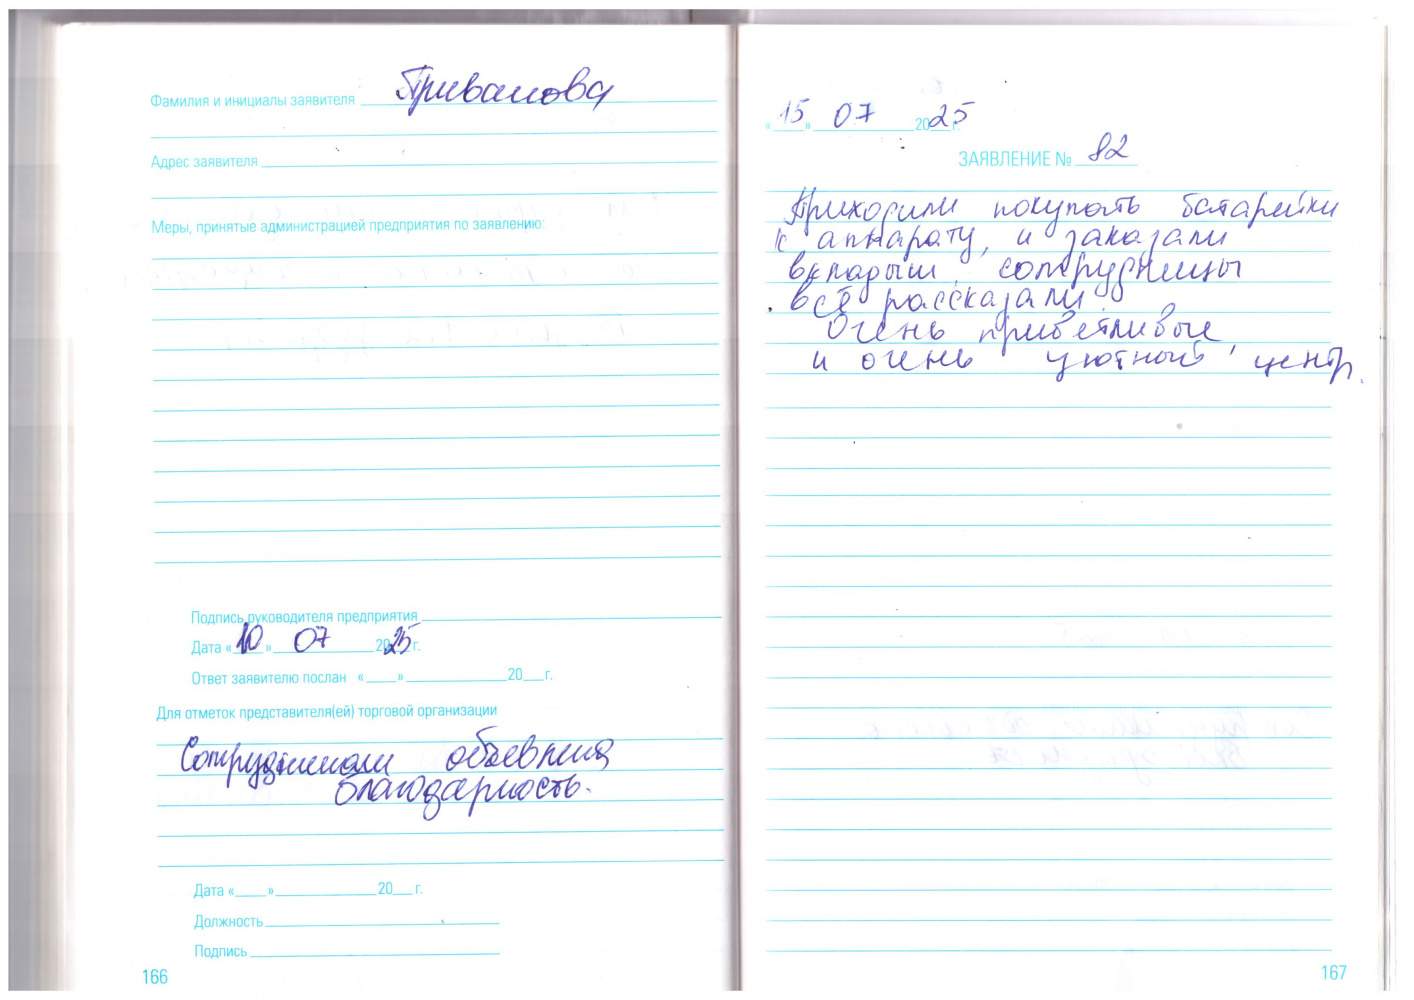 Фамилия и инициалы заявителя Привалова
Адрес заявителя
Меры, принятые администрацией предприятия по заявлению:
Подпись руководителя предприятия
Дата «10» 07 2025 г.
Ответ заявителю послан «__» ____ 20__г.
Для отметок представителя(ей) торговой организации
Сотрудникам объявлена
благодарность.
Дата «__» ____ 20__ г.
Должность
Подпись
166
«15» 07 2025 г.
ЗАЯВЛЕНИЕ № 82
Приходили покупать батарейки
к аппарату, и заказали
вкладыш, сотрудницы
всё рассказали.
Очень приветливые,
и очень уютный центр.
167